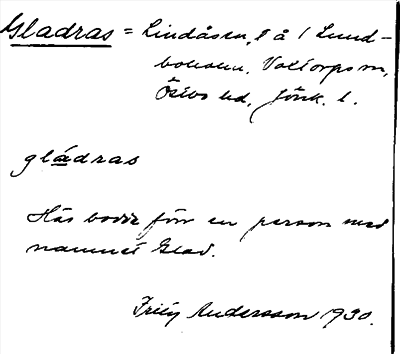 Gladras = Lindåsen, t å 1 Lund-
bohem. Valtorps sn,
Östbo hd, Jönk. l.
gládras
Här bodde förr en person med
namnet Glad.
Fritz Andersson 1930.